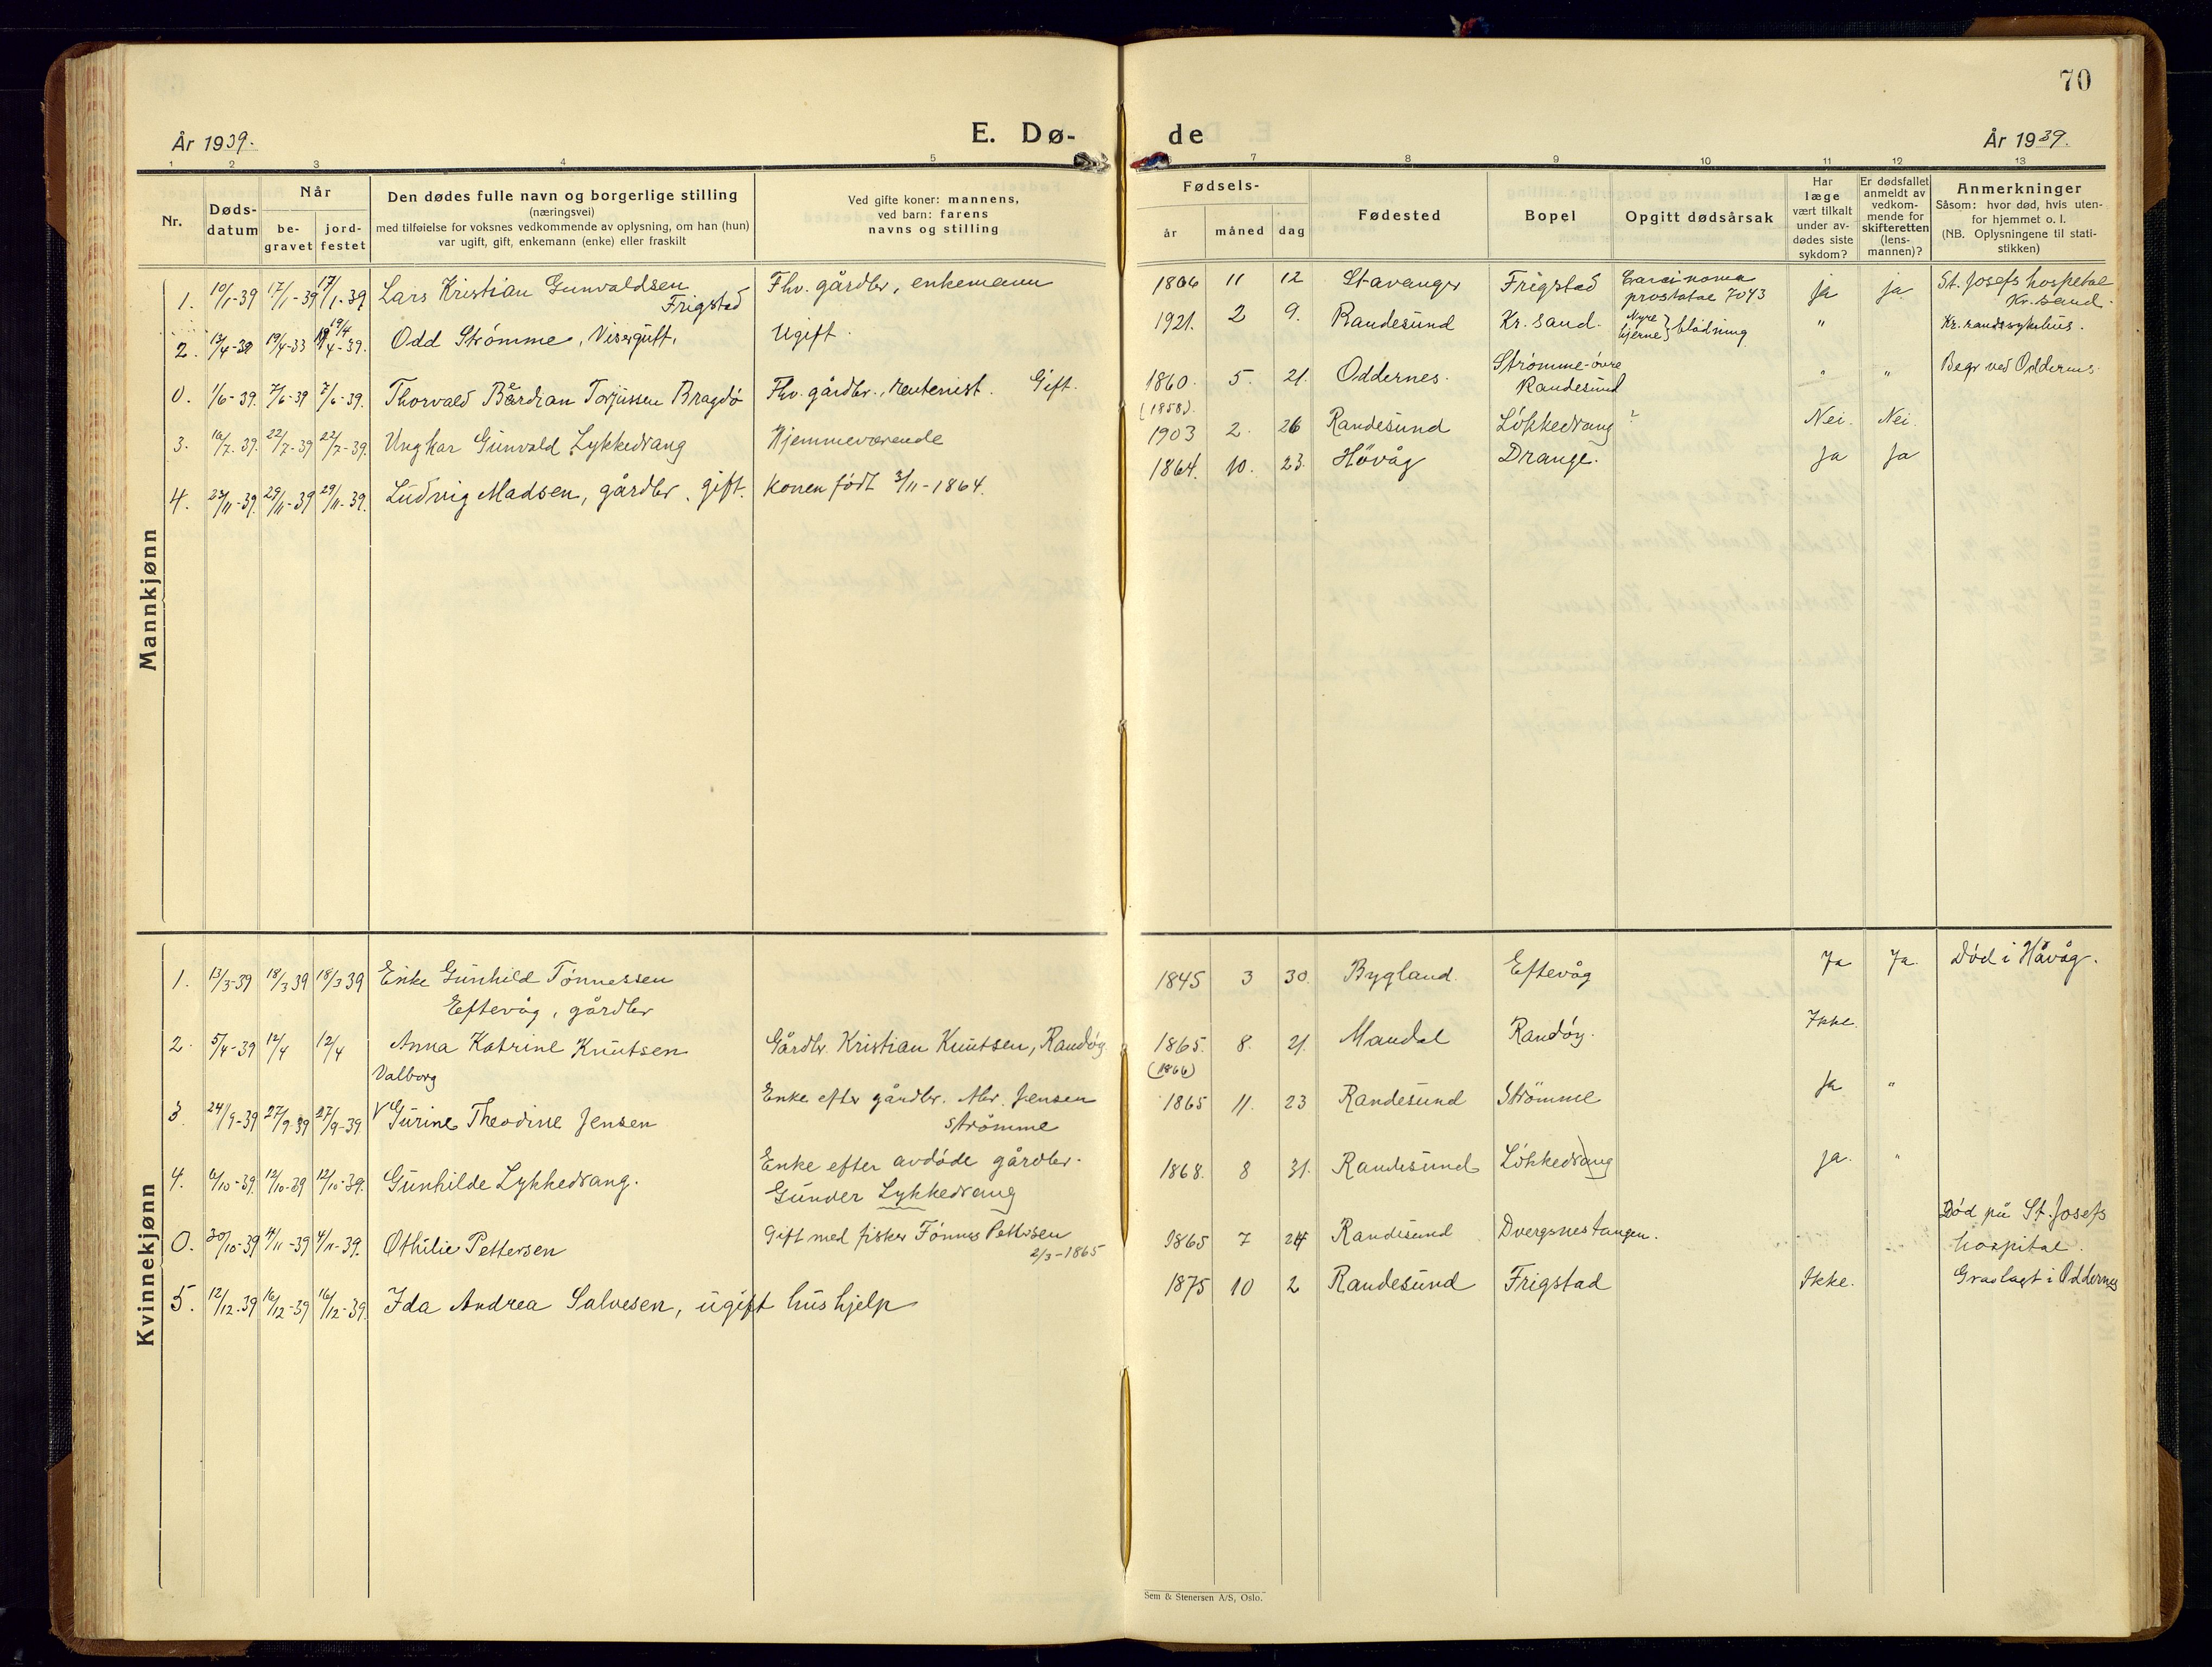 70
År 1939.
E. Dø-
de
År 1939.
1 2 3 4 5 7 8 9 10 11 12 13
Nr.
Døds-
datum
Når
be-
gravet
jord-
festet
Den dødes fulle navn og borgerlige stilling
(næringsvei)
med tilføielse for voksnes vedkommende av oplysning, om han (hun)
var ugift, gift, enkemann (enke) eller fraskilt
Ved gifte koner: mannens,
ved barn: farens
navns og stilling
Fødsels-
år måned dag
Fødested
Bopel
Opgitt dødsårsak
Har
læge
vært tilkalt
under av-
dødes siste
sykdom?
Er dødsfallet
anmeldt av
vedkom-
mende for
skifteretten
(lens-
mannen)?
Anmerkninger
Såsom: hvor død, hvis uten-
for hjemmet o. l.
(NB. Oplysningene til stati-
stikken)
Mannkjønn
1. 10/1-39 17/1-39 17/1-39 Lars Kristian Gunvaldsen Frigstad Fhv. gårdbr, enkemann 11 12 Stavanger Frigstad Carcinoma prostatae 7043 ja ja St. Josefs hospital Kr.sand.
2. 13/4-39 19/4-33 19/4-39. 19/4 Odd Strømme, Visergutt, Ugift. 1921. 2 9. Randesund Kr. sand. Nyre hjerne } blødning " Kr.sandssykehus.
0. 1/6-39. 7/6-39 7/6-39. Thorvald Berdian Torjussen Bragdø Fhv. gårdbr., rentenist. Gift. 1860. (1858). 5. 21. Oddernes. Strømme-övre Randesund " " Begr ved Oddernes.
3. 16/7.39. 22/7-39 22/7-39. Ungkar Gunvald Lykkedrang Hjemmeværende 1903 2. 26 Randesund Lökkedrang ? Nei. Nei.
4. 23/11-39. 29/11-39 29/11-39. Ludvig Madsen, gårdbr, gift. Konen født 3/11-1864. 1864. 10. 23. Hövåg Drange. Ja Ja
Kvinnekjønn
1. 13/3-39 18/3 39 18/3 39 Enke Gunhild Tønnessen Eftevåg, gårdbr 1845 3 30. Bygland. Eftevåg Ja Ja. Död i Hövåg.
2. 5/4-39 12/4 12/4 Anna Katrine Knutsen Gårdbr. Kristian Knutsen, Randøy 1865. (1866) 8. 21. Mandal Randöy. Ikke.
3. 24/9-39 27/9-39 27/9-39 Valborg Gurine Theodine Jensen Enke efter gårdbr. Abr. Jensen Strømme 1865 11. 23 Randesund Strömme Ja "
4. 6/10-39. 12/10-39 12/10-39. Gunhilde Lykkedrang. Enke efter avdøde gårdbr. Gunder Lykkedrang 1868. 8 31. Randesund Lökkedrang ja. "
0. 30/10-39 4/11-39 4/11-39. Othilie Pettersen Gift med fisker Tønnes Pettersen 2/3-1865 1865 7 24 Randesund Dvergsnestangen. Död på St. Josefs hospital.
5. 12/12.39 16/12-39 16/12-39. Ida Andrea Salvesen, ugift hushjelp 1875 10 2 Randesund Frigstad Ikke. Gravlagt i Oddernes
Sem & Stenersen A/S, Oslo.